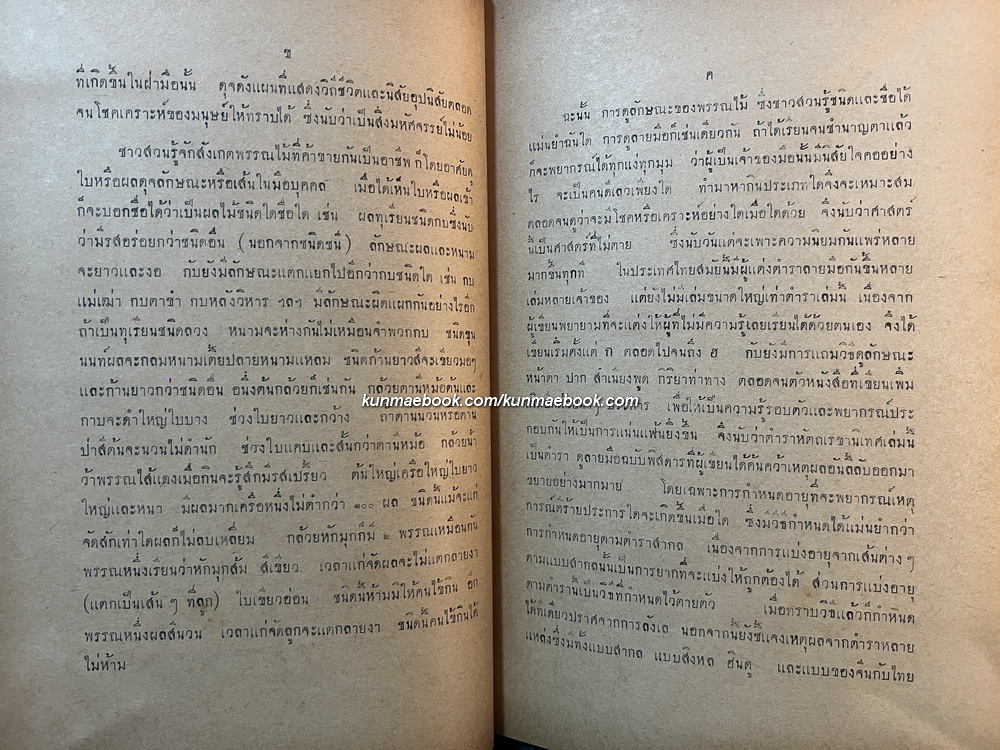 ข
ที่เกิดขึ้นในฝ่ามือนั้น ดุจดังแผนที่แสดงวิถีชีวิตและนิสัยอุปนิสัยตลอด
จนโชคเคราะห์ของมนุษย์ให้ทราบได้ ซึ่งนับว่าเป็นสิ่งมหัศจรรย์ไม่น้อย
ชาวสวนรู้จักสังเกตพรรณไม้ที่ค้าขายกันเป็นอาชีพ ก็โดยอาศัยดู
ใบหรือผลดุจลักษณะหรือเส้นในมือบุคคล เมื่อได้เห็นใบหรือผลเข้า
ก็จะบอกชื่อได้ว่าเป็นผลไม้ชนิดใดชื่อใด เช่น ผลทุเรียนชนิดกบซึ่งนับ
ว่ามีรสอร่อยกว่าชนิดอื่น (นอกจากชนิดชนี) ลักษณะผลและหนาม
จะยาวและงอ กับยังมีลักษณะแตกแยกไปอีกว่ากบชนิดใด เช่น กบ
แม่เฒ่า กบตาขำ กบหลังวิหาร ฯลฯ มีลักษณะผิดแผกกันอย่างไรอีก
ถ้าเป็นทุเรียนชนิดลวง หนามจะห่างกันไม่เหมือนจำพวกกบ ชนิดขุน
นนท์ผลจะกลมหนามเตี้ยปลายหนามแหลม ชนิดก้านยาวสีจะเขียวมอๆ
และก้านยาวกว่าชนิดอื่น อนึ่งต้นกล้วยก็เช่นกัน กล้วยตานีหม้อต้นและ
กาบจะดำใหญ่ใบบาง ช่วงใบยาวและกว้าง ถ้าตานีนวนหรือตานี
ป่าสีต้นจะนวนไม่ดำนัก ช่วงใบแคบและสั้นกว่าตานีหม้อ กล้วยน้ำ
ว้าพรรณไส้แดงเมื่อกินจะรู้สึกมีรสเปรี้ยว ต้นใหญ่เครือใหญ่ใบยาว
ใหญ่และหนา มีผลมากเครือหนึ่งไม่ต่ำกว่า ๑๐๐ ผล ชนิดนี้แม้จะแก่
จัดสักเท่าใดผลก็ไม่ลบเหลี่ยม กล้วยหักมุกก็มี ๒ พรรณเหมือนกัน
พรรณหนึ่งเรียนว่าหักมุกส้ม สีเขียว เวลาแก่จัดผลจะไม่แตกลายงา
(แตกเป็นเส้น ๆ ที่ลูก) ใบเขียวอ่อน ชนิดนี้ห้ามมิให้คนไข้กิน อีก
พรรณหนึ่งผลสีนวน เวลาแก่จัดลูกจะแตกลายงา ชนิดนี้คนไข้กินได้
ไม่ห้าม
ค
ฉะนั้น การดูลักษณะของพรรณไม้ ซึ่งชาวสวนรู้ชนิดและชื่อได้
แม่นยำฉันใด การดูลายมือก็เช่นเดียวกัน ถ้าได้เรียนจนชำนาญตาแล้ว
ก็จะพยากรณ์ได้ทุกแง่ทุกมุม ว่าผู้เป็นเจ้าของมือนั้นมีนิสัยใจคออย่าง
ไร จะเป็นคนดีเลวเพียงใด ทำมาหากินประเภทใดจึงจะเหมาะสม
ตลอดจนดูว่าจะมีโชคหรือเคราะห์อย่างใดเมื่อใดด้วย จึงนับว่าศาสตร์
นี้เป็นศาสตร์ที่ไม่ตาย ซึ่งนับวันแต่จะเพาะความนิยมกันแพร่หลาย
มากขึ้นทุกที ในประเทศไทยสมัยนี้มีผู้แต่งตำราลายมือกันขึ้นหลาย
เล่มหลายเจ้าของ แต่ยังไม่มีเล่มขนาดใหญ่เท่าตำราเล่มนี้ เนื่องจาก
ผู้เขียนพยายามที่จะแต่งให้ผู้ที่ไม่มีความรู้เลยเรียนได้ด้วยตนเอง จึงได้
เขียนเริ่มตั้งแต่ ก ตลอดไปจนถึง ฮ กับยังมีการแถมวิธีดูลักษณะ
หน้าตา ปาก สำเนียงพูด กิริยาท่าทาง ตลอดจนตัวหนังสือที่เขียนเพิ่ม
เพื่อให้เป็นความรู้รอบตัวและพยากรณ์ประ
กอบกันให้เป็นการแน่นแฟ้นยิ่งขึ้น จึงนับว่าตำราหัตถเรขานิเทศเล่มนี้
เป็นตำรา ดูลายมือฉบับพิสดารที่ผู้เขียนได้ค้นคว้าเหตุผลอันลี้ลับออกมา
ขยายอย่างมากมาย โดยเฉพาะการกำหนดอายุที่จะพยากรณ์เหตุ
การณ์ดีร้ายประการใดจะเกิดขึ้นเมื่อใด ซึ่งมีวิธีกำหนดได้แม่นยำกว่า
การกำหนดอายุตามตำราสากล เนื่องจากการแบ่งอายุจากเส้นต่าง ๆ
ตามแบบสากลนั้นเป็นการยากที่จะแบ่งให้ถูกต้องได้ ส่วนการแบ่งอายุ
ตามตำรานี้เป็นวิธีที่กำหนดไว้ตายตัว เมื่อทราบวิธีแล้วก็กำหนด
ได้ทีเดียวปราศจากการลังเล นอกจากนี้ยังชี้แจงเหตุผลจากตำราหลาย
แหล่งซึ่งมีทั้งแบบสากล แบบสิงหล ฮินดู และแบบของจีนกับไทย
kunmaebook.com/kunmaebook.com